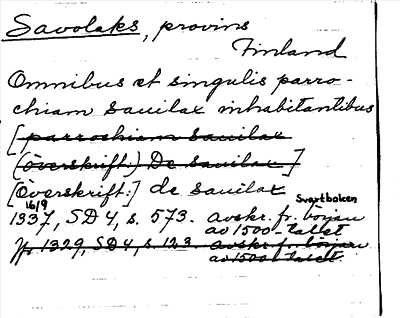 Savolaks, provins
Finland
Omnibus et singulis parro-
chiam Sauilax inhabitantibus
[parrochiam Sauilax
(överskrift:) De Sauilax]
[Överskrift:] de Sauilax
16/9 Svartboken
1337, SD 4, s. 573. avskr. fr. början
av 1500-talet
Jfr 1329, SD 4, s. 123. avskr. f. början
av 1500-talet.